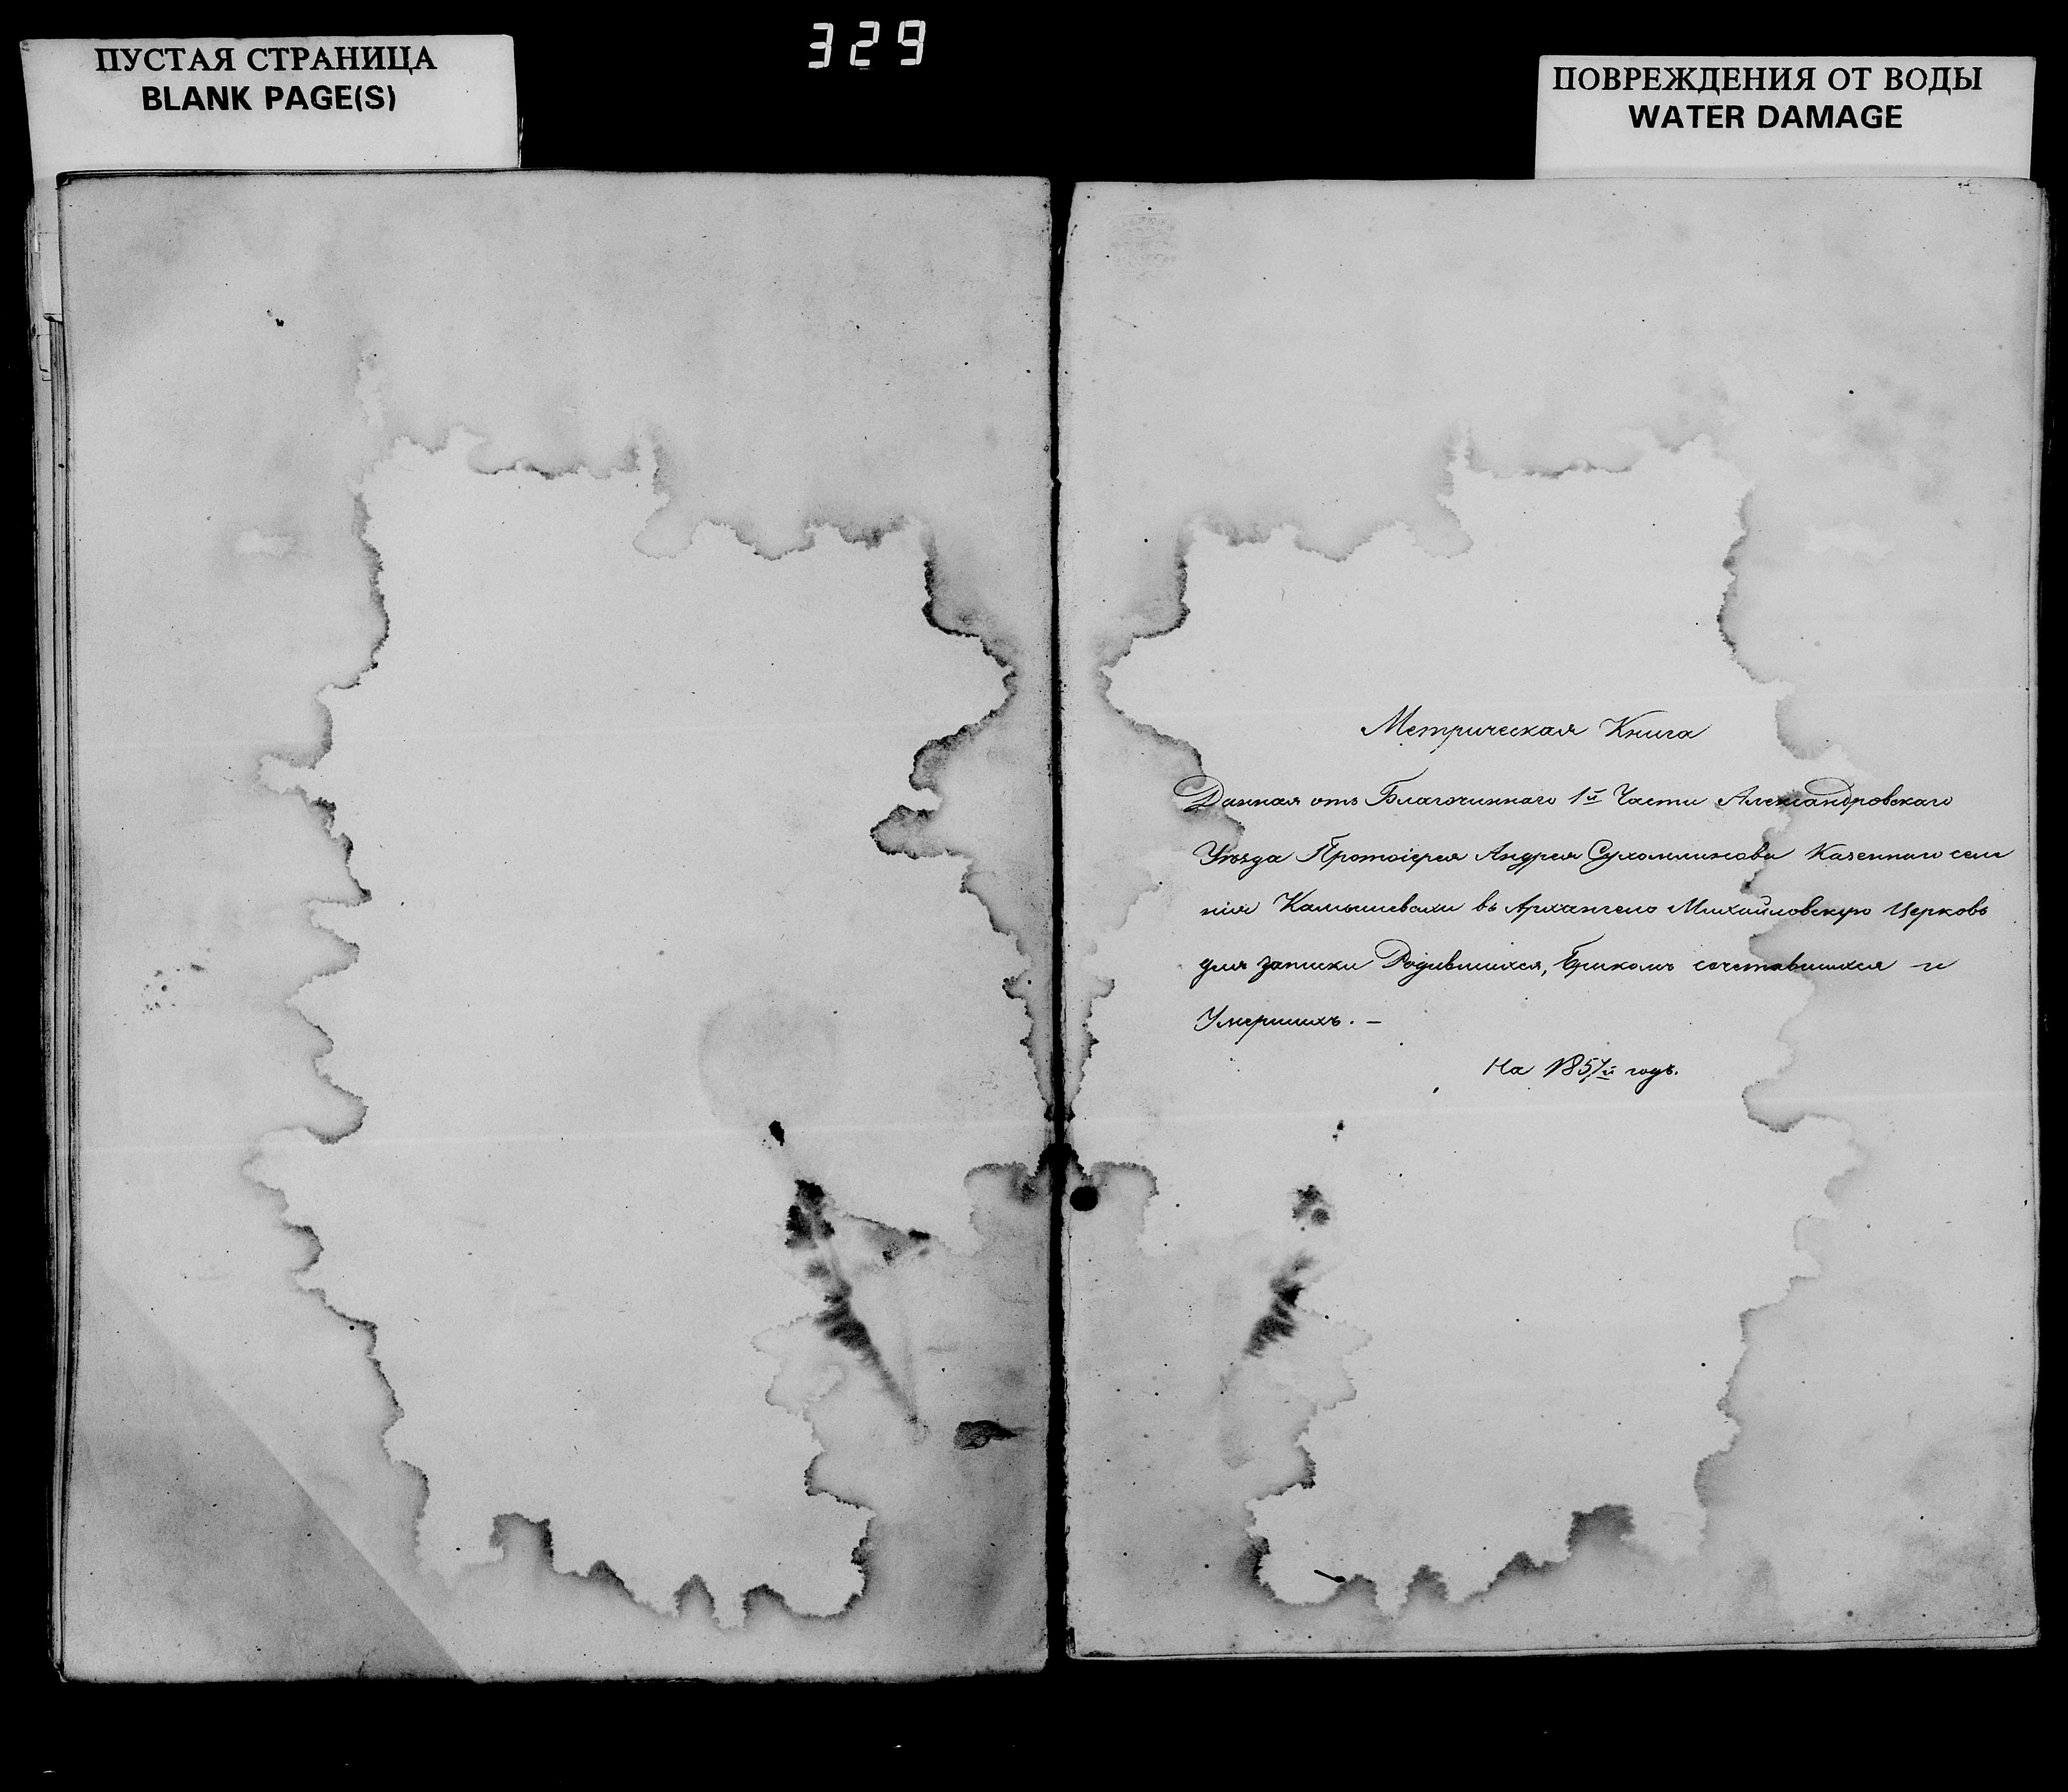 329
ПУСТАЯ СТРАНИЦА
BLANK PAGE(S)
ПОВРЕЖДЕНИЯ ОТ ВОДЫ
WATER DAMAGE
Метрическая Книга
Данная отъ Благочиннаго 1й Части Александровскаго
Уѣзда Протоіерея Андрея Сухомлинова Казеннаго селе
нія Камышевахи въ Архангело Михайловскую Церковь
для записки Родившихся, Бракомъ сочетавшихся и
Умершихъ. —
На 1857й годъ.